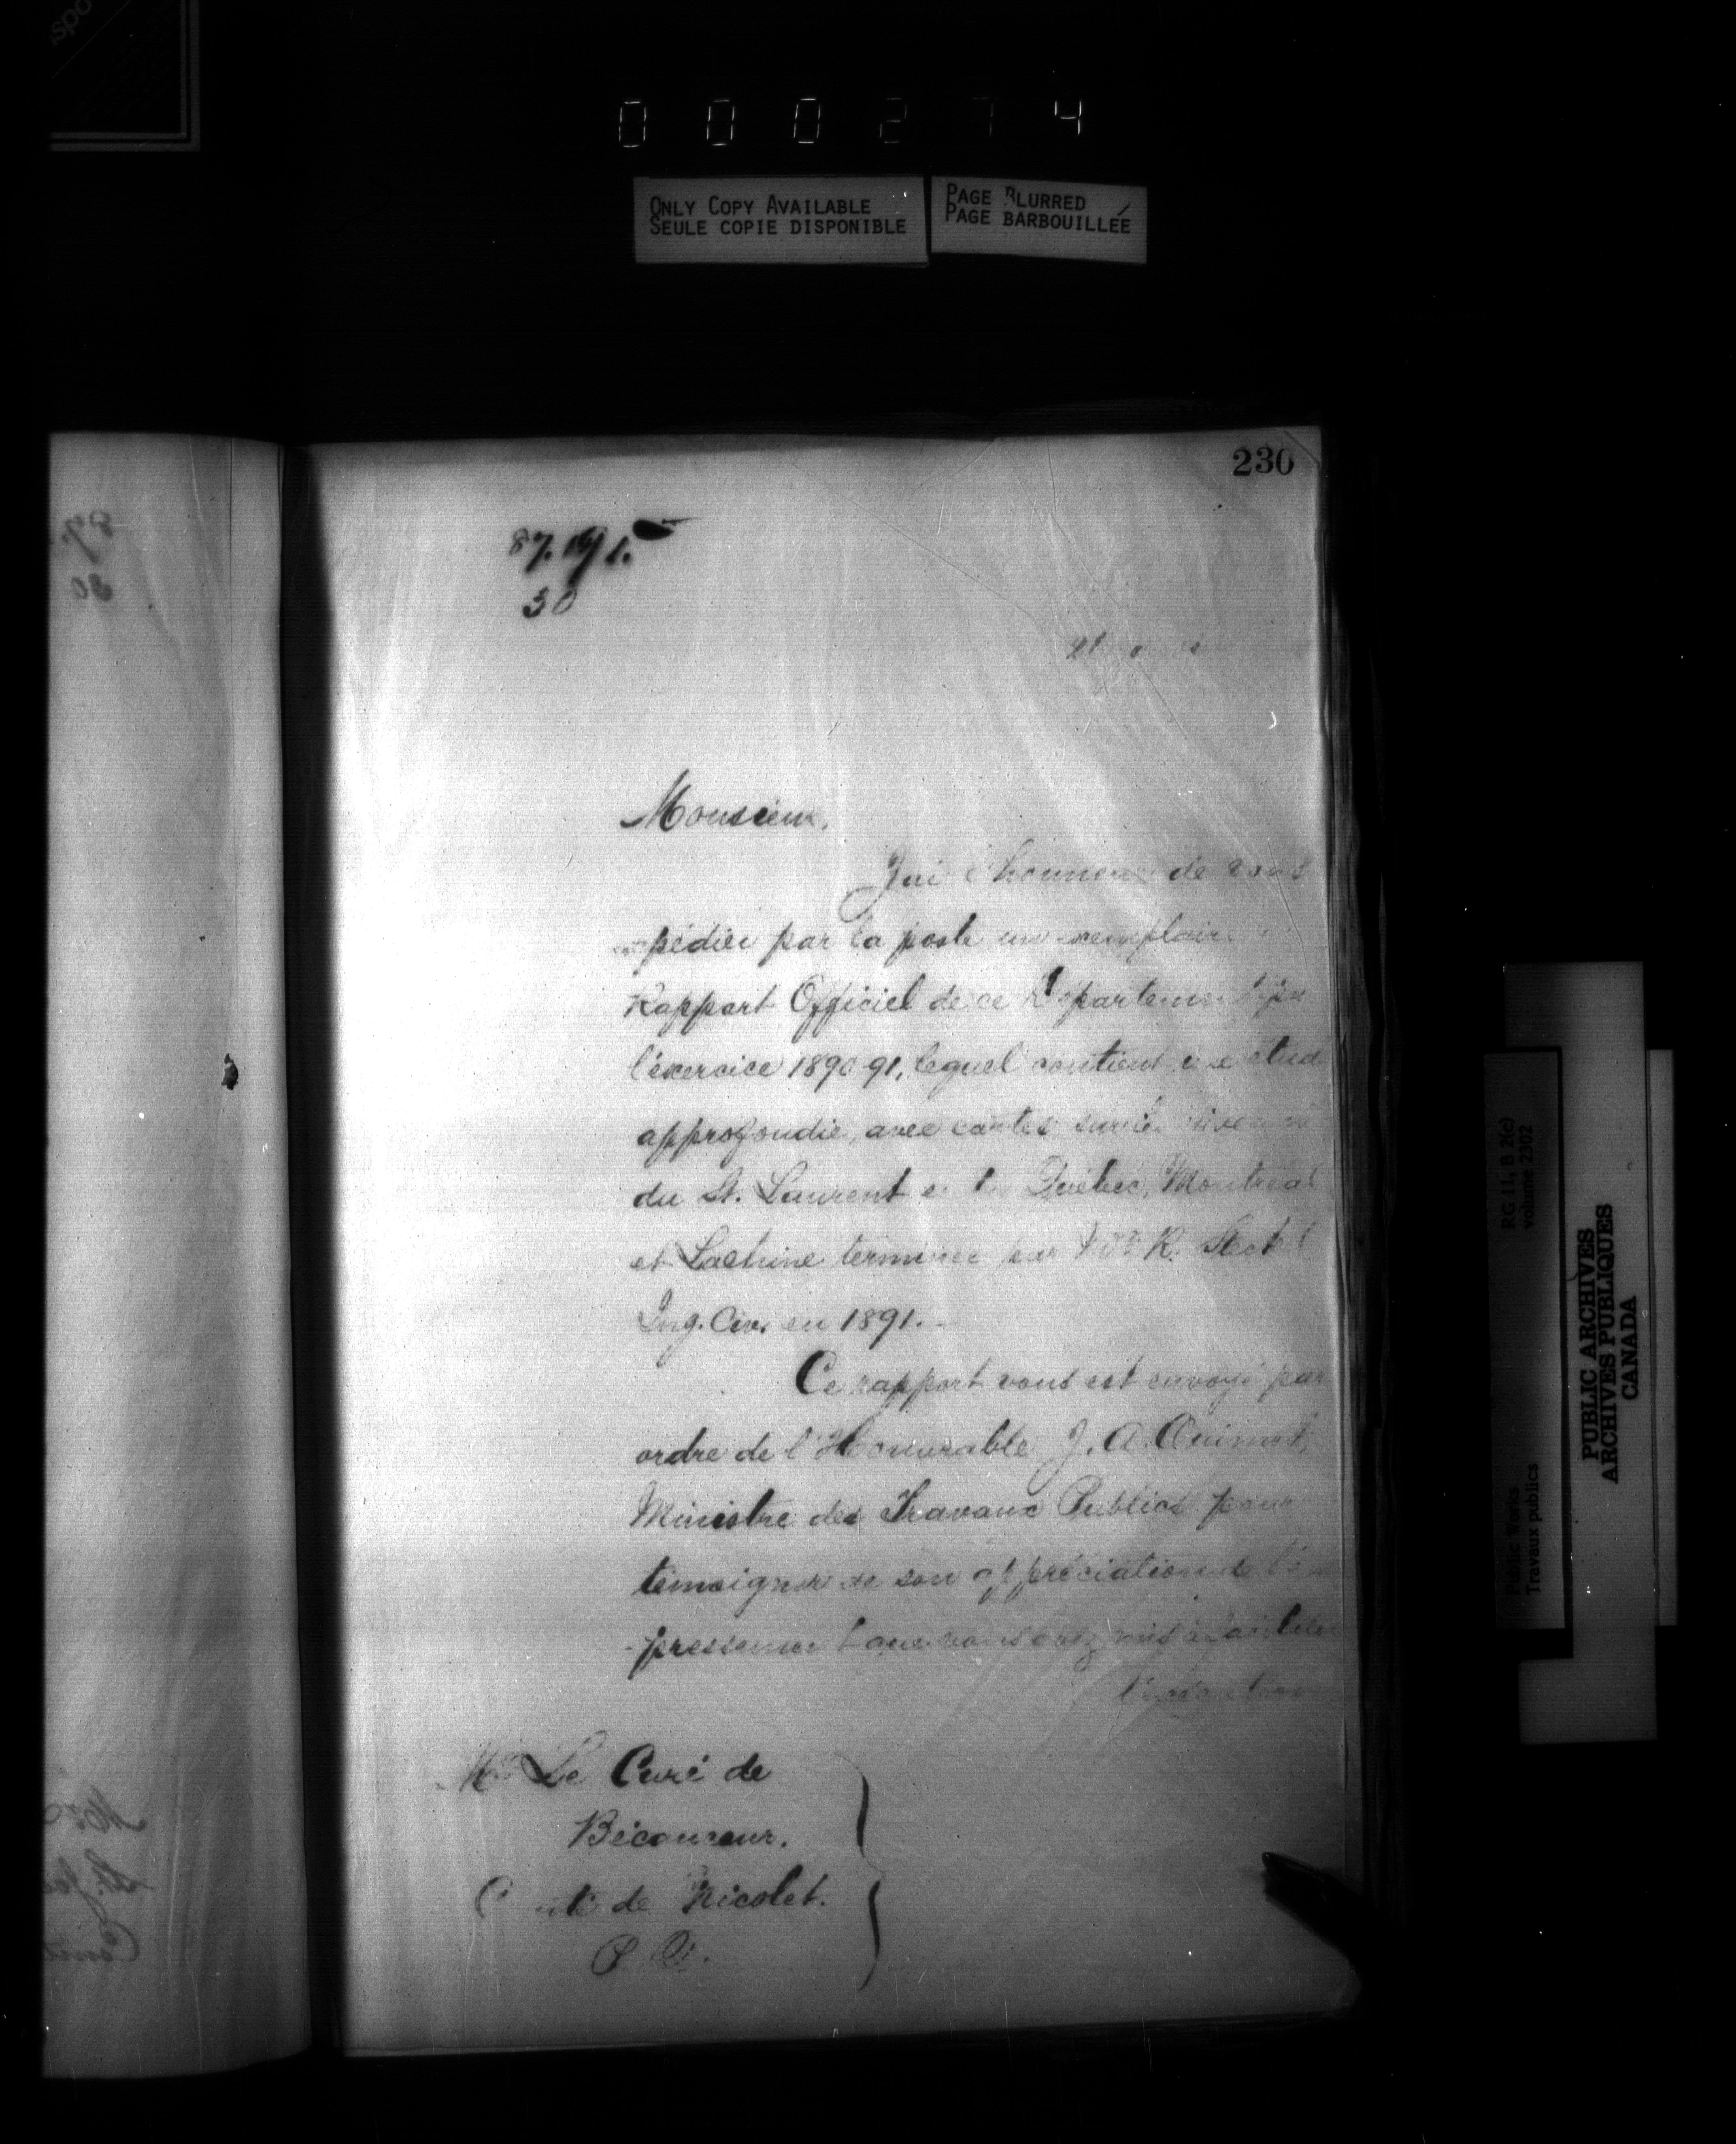 0 0 0 2 7 4
ONLY COPY AVAILABLE
SEULE COPIE DISPONIBLE
PAGE BLURRED
PAGE BARBOUILLÉE
230
87.191.
30
Monsieur,
J'ai l'honneur de vous
expédier par la poste un exemplaire
Rapport Officiel de ce Département pr
l'éxercice 1890-91, lequel contient une étude
approfondie, avec cartes sur les niveaux
du St. Laurent entre Québec, Montréal
et Lachine terminée par Mr. R. Steckel
Ing. Civ. en 1891.-
Ce rapport vous est envoyé par
ordre de l'Honorable J. A. Ouimet,
Ministre des Travaux Publics pour
témoigner de son appréciation de l'em
-pressement que vous avez mis à faciliter
Mr. Le Curé de
Bécancour.
Comté de Nicolet.
P. Q.
RG 11, B 2(c)
volume 2302
Public Works
Travaux publics
PUBLIC ARCHIVES
ARCHIVES PUBLIQUES
CANADA